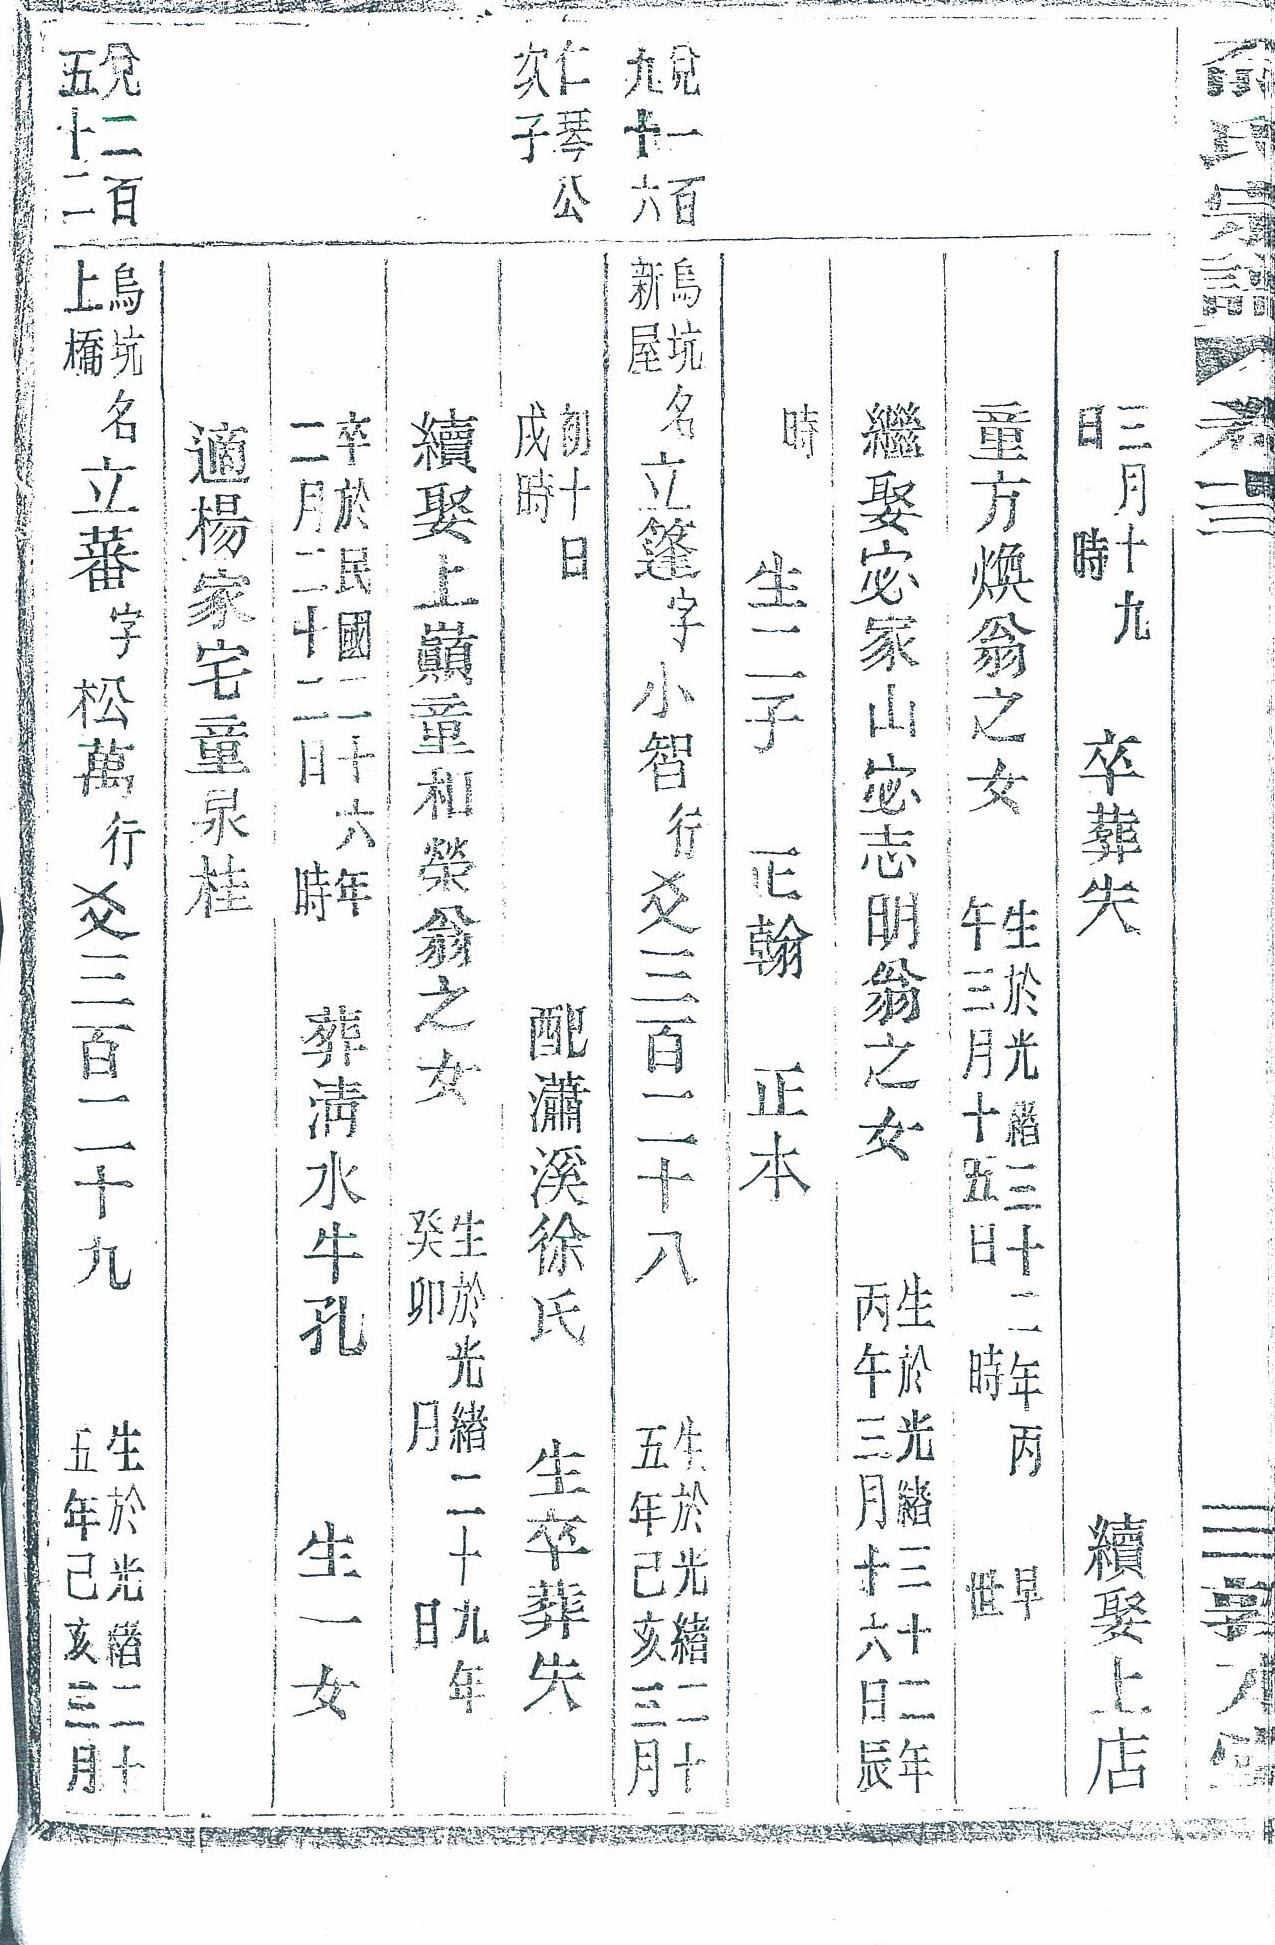 俞氏宗譜 卷三
三 敦本堂
三月十九
日 時 卒葬失 續娶上店
童方煥翁之女 生於光緒三十二年丙
午三月十五日 時 早
世
繼娶宓家山宓志明翁之女 生於光緒三十二年
丙午三月十六日辰
時 生二子 正翰 正本
兌一百
九十六
烏坑
新屋
名立篷字小智行爻三百二十八 生於光緒二十
五年己亥三月
仁琴公
次子
初十日
戌時 配瀟溪徐氏 生卒葬失
續娶上巔童和榮翁之女 生於光緒二十九年
癸卯 月 日
卒於民國二十六年
二月二十二日 時 葬淸水牛孔 生一女
適楊家宅童泉桂
兌二百
五十二
烏坑
上橋
名立蕃字松萬行爻三百二十九 生於光緒二十
五年己亥三月